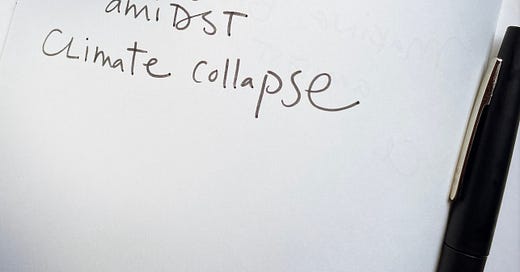 amiDST
CLimate collapse